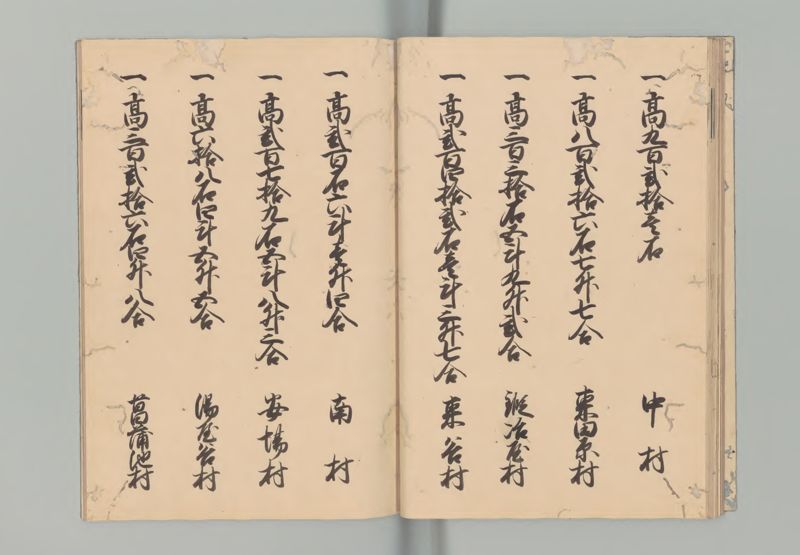 一高九百弐拾壱石 中村
一高八百弐拾六石七升七合 東田原村
一高三百三拾石五斗九升弐合 鍛冶屋村
一高弐百四拾弐石壱斗三升七合 東谷村
一高弐百石六斗壱升四合 南村
一高弐百七拾九石五斗八升三合 安場村
一高六拾八石四斗五升五合 湯屋谷村
一高三百弐拾六石四升八合 菖蒲池村